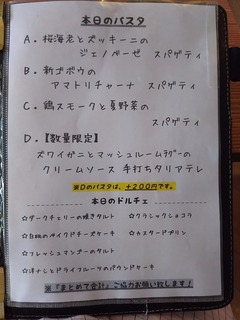 本日のパスタ
A. 桜海老とズッキーニの
ジェノベーゼ スパゲティ
B. 新ゴボウの
アマトリチャーナ スパゲティ
C. 鶏スモークと夏野菜の
スパゲティ
D.【数量限定】
ズワイガニとマッシュルームラグーの
クリームソース 手打ちタリアテレ
※Dのパスタは、+200円です。
本日のドルチェ
☆ダークチェリーの焼きタルト ☆クラシックショコラ
☆白桃のベイクドチーズケーキ ☆カスタードプリン
☆フレッシュマンゴーのタルト
☆洋ナシとドライフルーツのパウンドケーキ
※「まとめて会計」ご協力お願い致します!